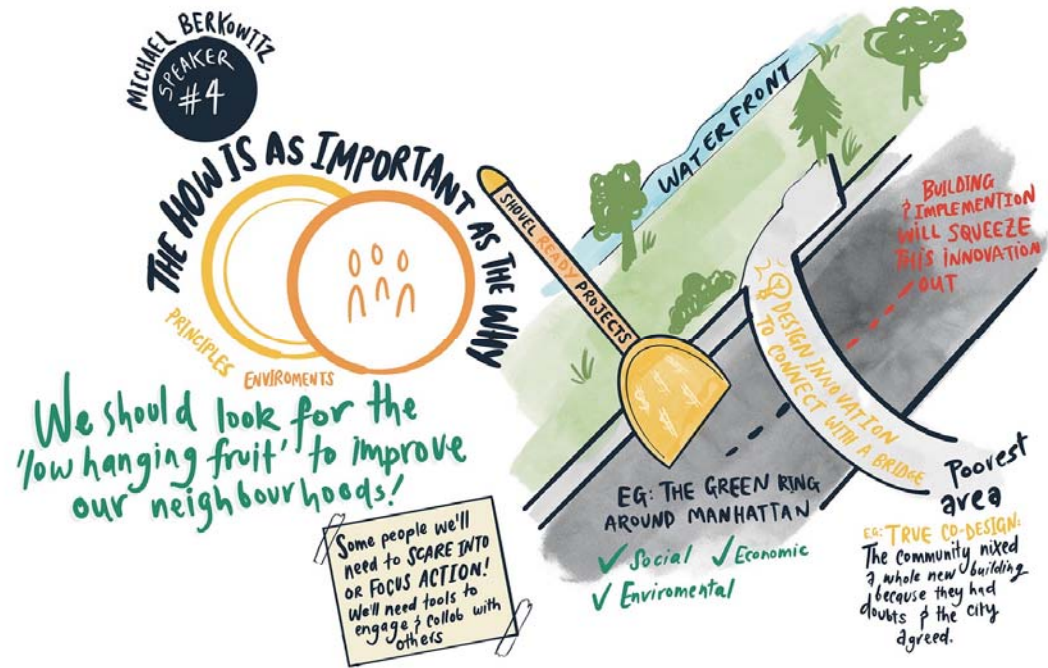 MICHAEL BERKOWITZ
SPEAKER
#4
THE HOW IS AS IMPORTANT AS THE WHY
PRINCIPLES
ENVIROMENTS
We should look for the
'low hanging fruit' to improve
our neighbourhoods!
Some people we'll
need to SCARE INTO
OR FOCUS ACTION!
We'll need tools to
engage & collab with
others
SHOVEL READY PROJECTS
WATERFRONT
BUILDING
& IMPLEMENTION
WILL SQUEEZE
THIS INNOVATION
OUT
DESIGN INNOVATION
TO CONNECT WITH A BRIDGE
Poorest
area
EG: THE GREEN RING
AROUND MANHATTAN
✓ Social ✓ Economic
✓ Enviromental
EG: TRUE CO-DESIGN:
The community nixed
a whole new building
because they had
doubts & the city
agreed.